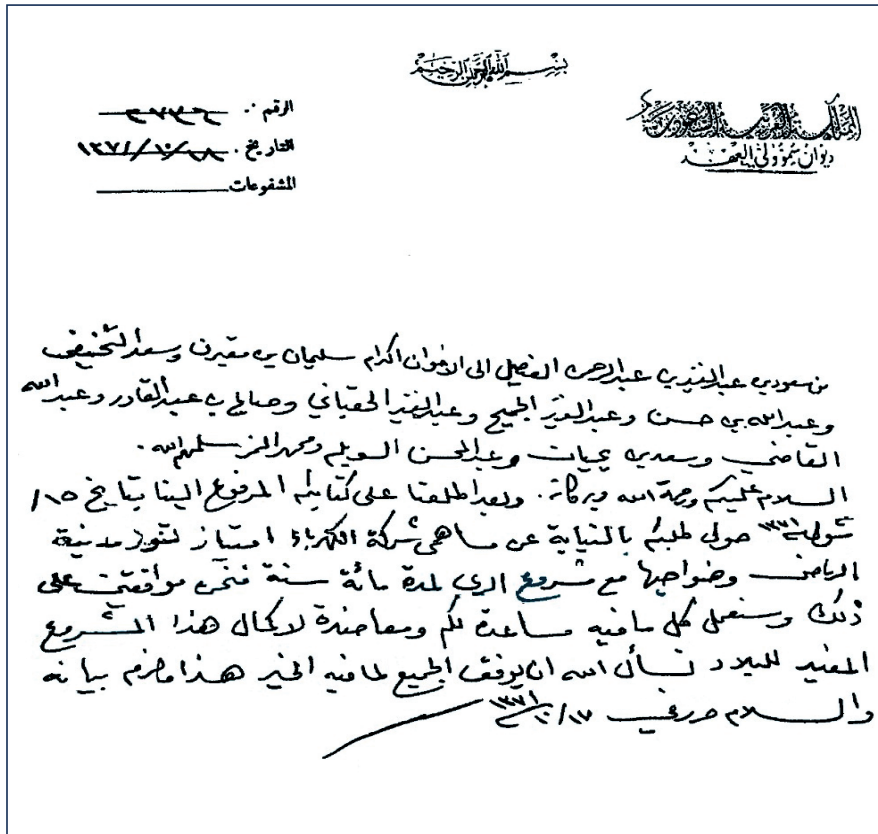 بسم الله الرحمن الرحيم
المملكة العربية السعودية
ديوان سمو ولي العهد
الرقم
التاريخ ١٨/١٠/١٣٧١
المشفوعات
من سعود بن عبدالعزيز بن عبدالرحمن الفيصل الى الاخوان الكرام سليمان بن مقيرن وسعد
وعبدالله بن حسن وعبدالعزيز الجميح وعبدالعزيز الحقباني وصالح بن عبدالقادر وعبدالله
القاضي وسعد بن وعبدالمحسن السويلم ومحمد سلمهم الله.
السلام عليكم ورحمة الله وبركاته. وبعد اطلعنا على كتابكم المرفوع الينا بتاريخ ١٥/
شوال ١٣٧١ حول طلبكم بالنيابة عن مساهمي شركة الكهرباء امتياز مدينة
الرياض وضواحيها مع مشروع الري لمدة مائة سنة فنحن موافقين على
ذلك وسنعمل كل مافيه مساعدة لكم ومعاضدة لاكمال هذا المشروع
المفيد للبلاد نسأل الله ان يوفق الجميع لمافيه الخير هذا مالزم بيانه
والسلام ١٧/١٠/١٣٧١